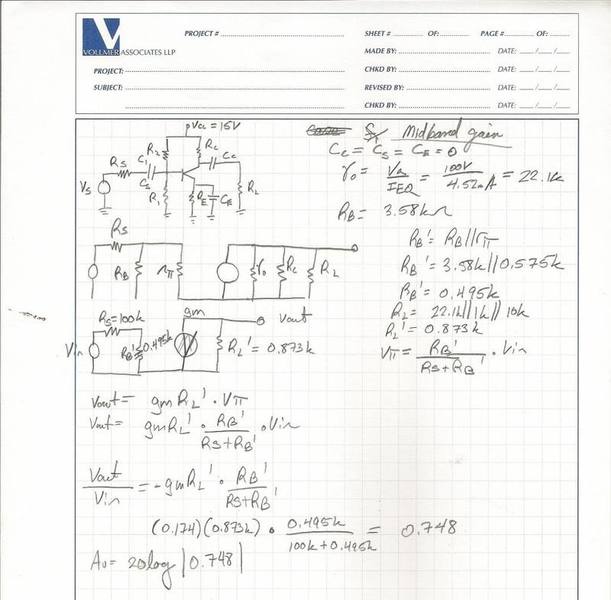 V
VOLLMER ASSOCIATES LLP
PROJECT #
SHEET # OF: PAGE # OF:
MADE BY: DATE: / /
PROJECT: CHKD BY: DATE: / /
SUBJECT: REVISED BY: DATE: / /
CHKD BY: DATE: / /
Midband gain
Vcc = 15V
Rs C1 R2 Rc Cc
Vs Cs R1 RE CE RL
Cc = Cs = CE = 0
ro = Va/IEQ = 100V/4.52mA = 22.1k
RB = 3.58kΩ
Rs
RB rπ ro Rc RL
RB' = RB//rπ
RB' = 3.58k//0.575k
RB' = 0.495k
RL = 22.1k//1k//10k
RL' = 0.873k
Vπ = RB'/(RS+RB') · Vin
Rs=100k gm Vout
Vin RB' 0.495k RL' = 0.873k
Vout = gmRL' · Vπ
Vout = gmRL' · RB'/(RS+RB') · Vin
Vout/Vin = -gmRL' · RB'/(RS+RB')
(0.174)(0.873k) · 0.495k/(100k+0.495k) = 0.748
Av = 20log |0.748|